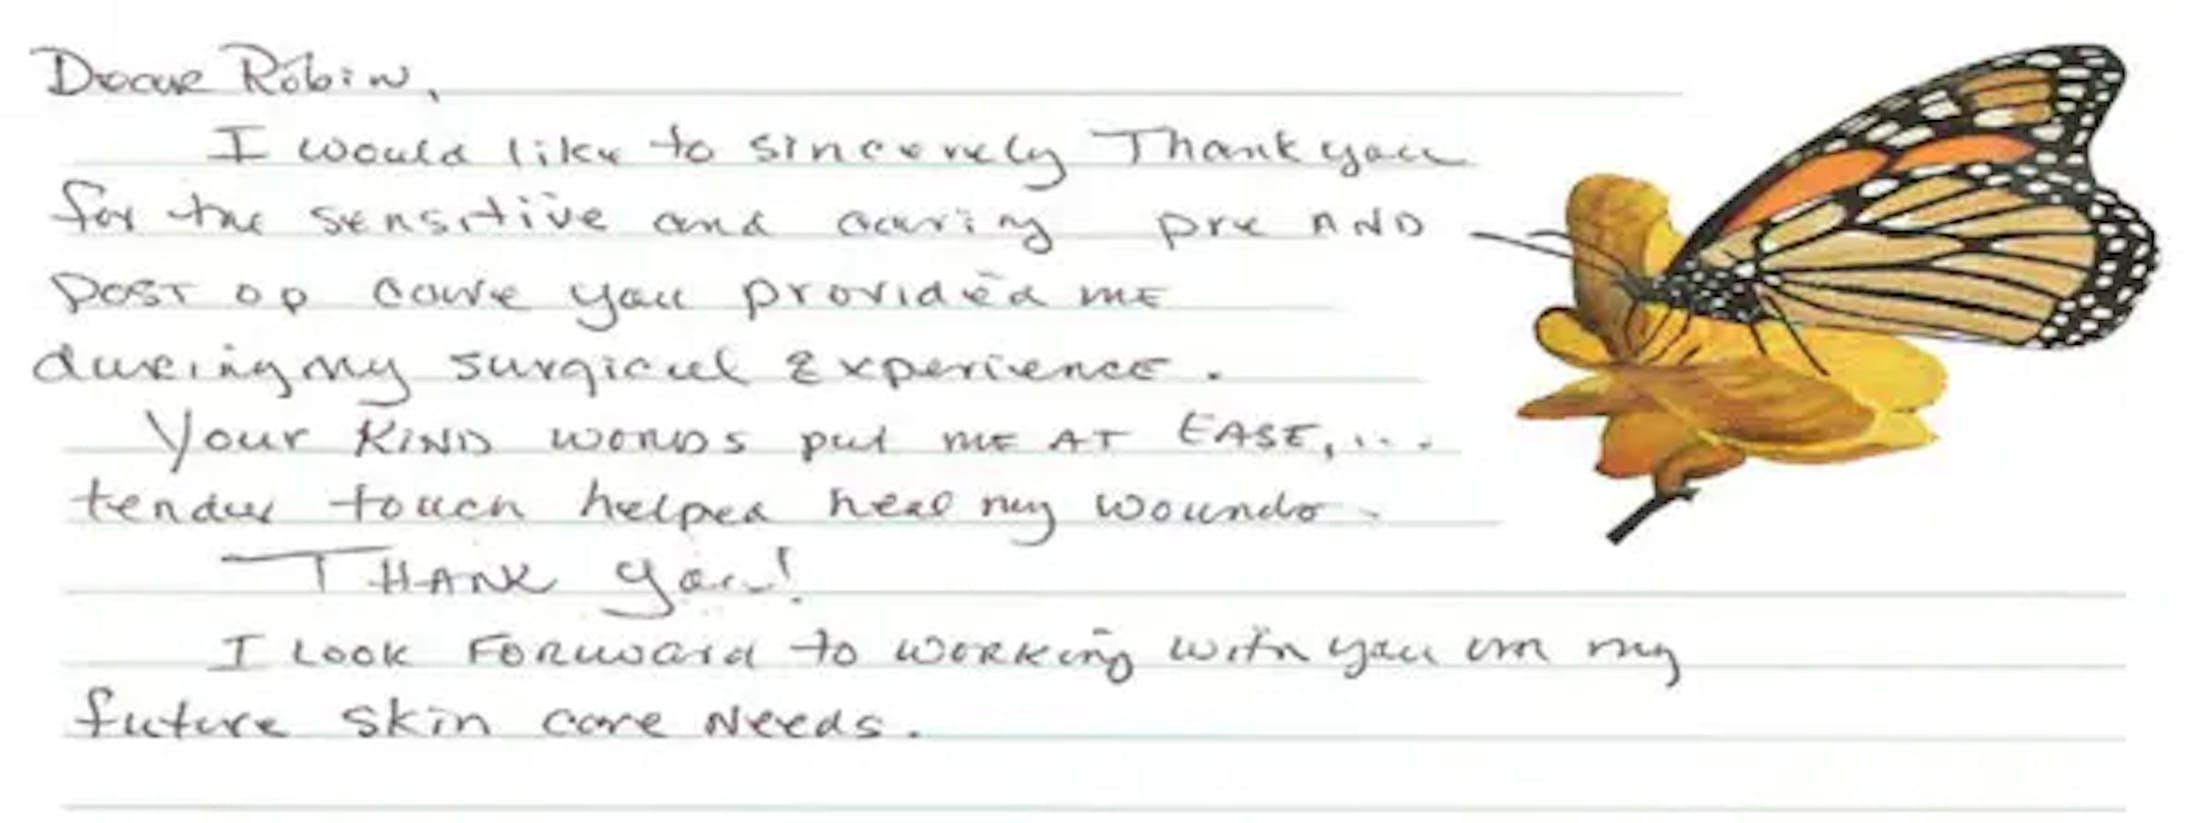 Dear Robin,
I would like to sincerely Thank you
for the sensitive and caring pre AND
post op care you provided me
during my surgical Experience.
Your KIND words put me AT EASE,...
tender touch helped heal my wounds.
THANK you!
I Look Forward to working with you on my
future skin care Needs.